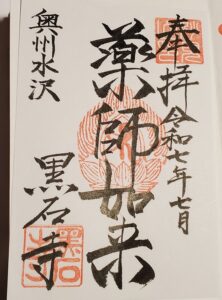 奉拝
令和七年七月
薬師如来
奥州水沢
黒石寺
黒石
寺